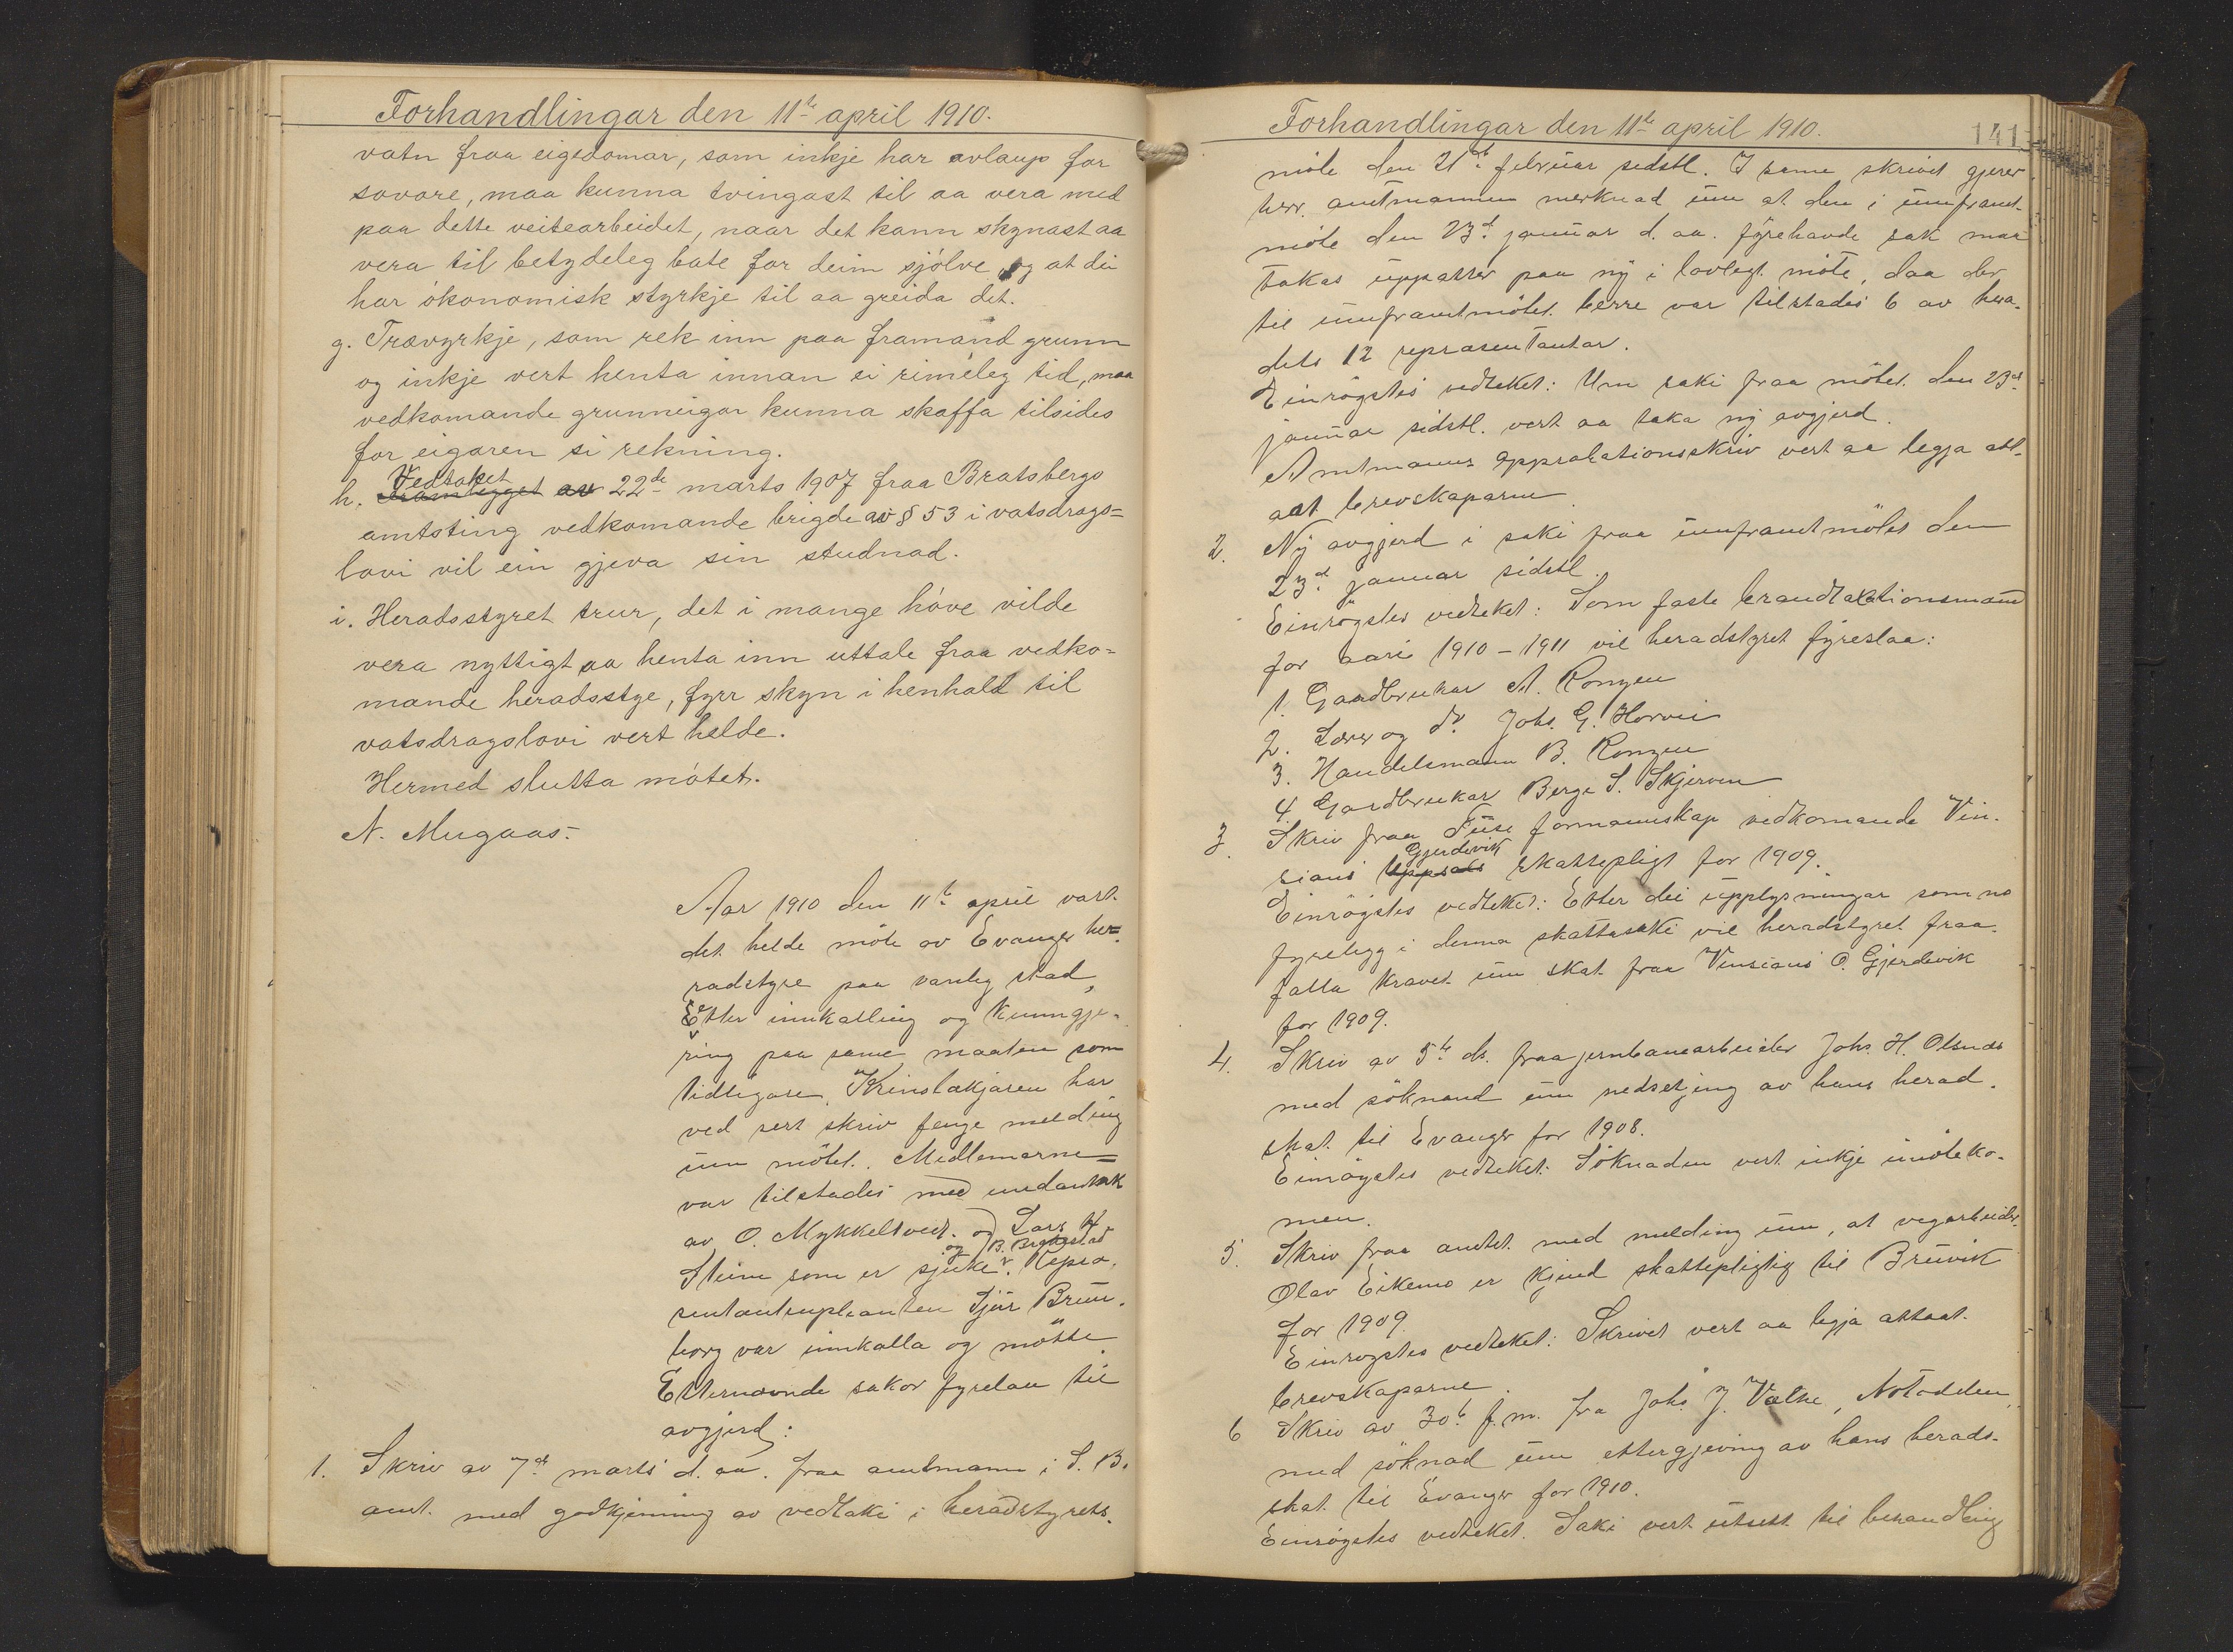 Forhandlingar den 11te april 1910.
vatn fraa eigedomar, som inkje har avlaup for
sovore, maa kunna tvingast til aa vera med
paa dette veitearbeidet, naar det kann skynast aa
vera til betydeleg bate for deim sjölve og at dei
har ökonomisk styrkje til aa greida det.
g. Trævyrkje, som rek inn paa framand grunn
og inkje vert henta innan ei rimeleg tid, maa
vedkomande grunneigar kunna skaffa tilsides
for eigaren si rekning.
Vedtaket
h. Framlegget av 22de marts 1907 fraa Bratsbergs
amtsting vedkomande brigde av § 53 i vatsdrags=
lovi vil ein gjeva sin studnad.
i. Heradsstyret trur, det i mange höve vilde
vera nyttigt aa henta inn uttale fraa vedko=
mande heradsstye, fyrr skyn i henhald til
vatsdragslovi vert helde.
Hermed slutta mötet.
N. Mugaas.
Aar 1910 den 11te april vart
det helde möte av Evanger he=
radstyre paa vanleg stad,
Etter innkalling og kunngje=
ring paa same maaten som
tidlegare. Krinslækjaren har
ved sert skriv fenge melding
um mötet. Medlemarne
var tilstades med undantak
av O. Mykkeltvedt. og Lars H.
og B. Brynestad
Steine som er sjuke. Repræ.
sentantsupleanten Sjur Brun.
borg var innkalla og mötte.
Etternevnde sakor fyrelaa til
avgjerd:
1. Skriv av 7de marts d. aa. fraa amtmann i S. B.
amt. med godkjenning av vedtaki i heradstyrets.
Forhandlingar den 11te april 1910.
141
möte den 21de februar sidstl. I same skrivet gjerer
herr. amtmannen merknad um at den i umframt-
möte den 23de januar d. aa. fyrehavde sak maa
takas uppatter paa ny i lovlegt möte, daa der
til umframtmötet berre var tilstades 6 av hera-
dets 12 repræsentantar.
Einrögstes vedteket: Um saki fraa mötet den 23de
januar sidstl. vert aa taka ny avgjerd.
Amtmanns approbationsskriv vert aa legja att-
aat brevskaparne.
2. Ny avgjerd i saki fraa umframtmötet den
23de januar sidstl.
Einrögstes vedteket: Som faste brandtaxationsmænd
for aari 1910 – 1911 vil heradstyret fyreslaa:
1. Gaardbrukar A. Rongen
2. Lærer og do. Johs. G. Horvei
3. Handelsmann B. Rongen
4. Gardbrukar Berge S. Skjerven
3. Skriv fraa Fuse formannskap vedkomande Vin-
Gjerdevik
sians Uppsals skattepligt for 1909.
Einrögstes vedteket: Etter dei upplysningar som no
fyrelegg i denna skattasaki vil heradstyret fraa-
falla kravet um skat fraa Vinsians O. Gjerdevik
for 1909.
4. Skriv av 5te ds. fraa jernbanearbeider Johs. H. Olsnes
med söknand um nedsetjing av hans herad-
skat til Evanger for 1908.
Einrögstes vedteket: Söknaden vert inkje imöteko-
men.
5. Skriv fraa amtet med melding um, at vegarbeider
Olav Eikemo er kjend skattepligtig til Bruvik
for 1909.
Einrögstes vedteket: Skrivet vert aa legja attaat
brevskaparne.
6 Skriv av 30te f. m. fra Johs. J. Vatne, Notodden,
med söknad um ettergjeving av hans herads-
skat til Evanger for 1910.
Einrögstes vedteket. Saki vert utsett til behandling